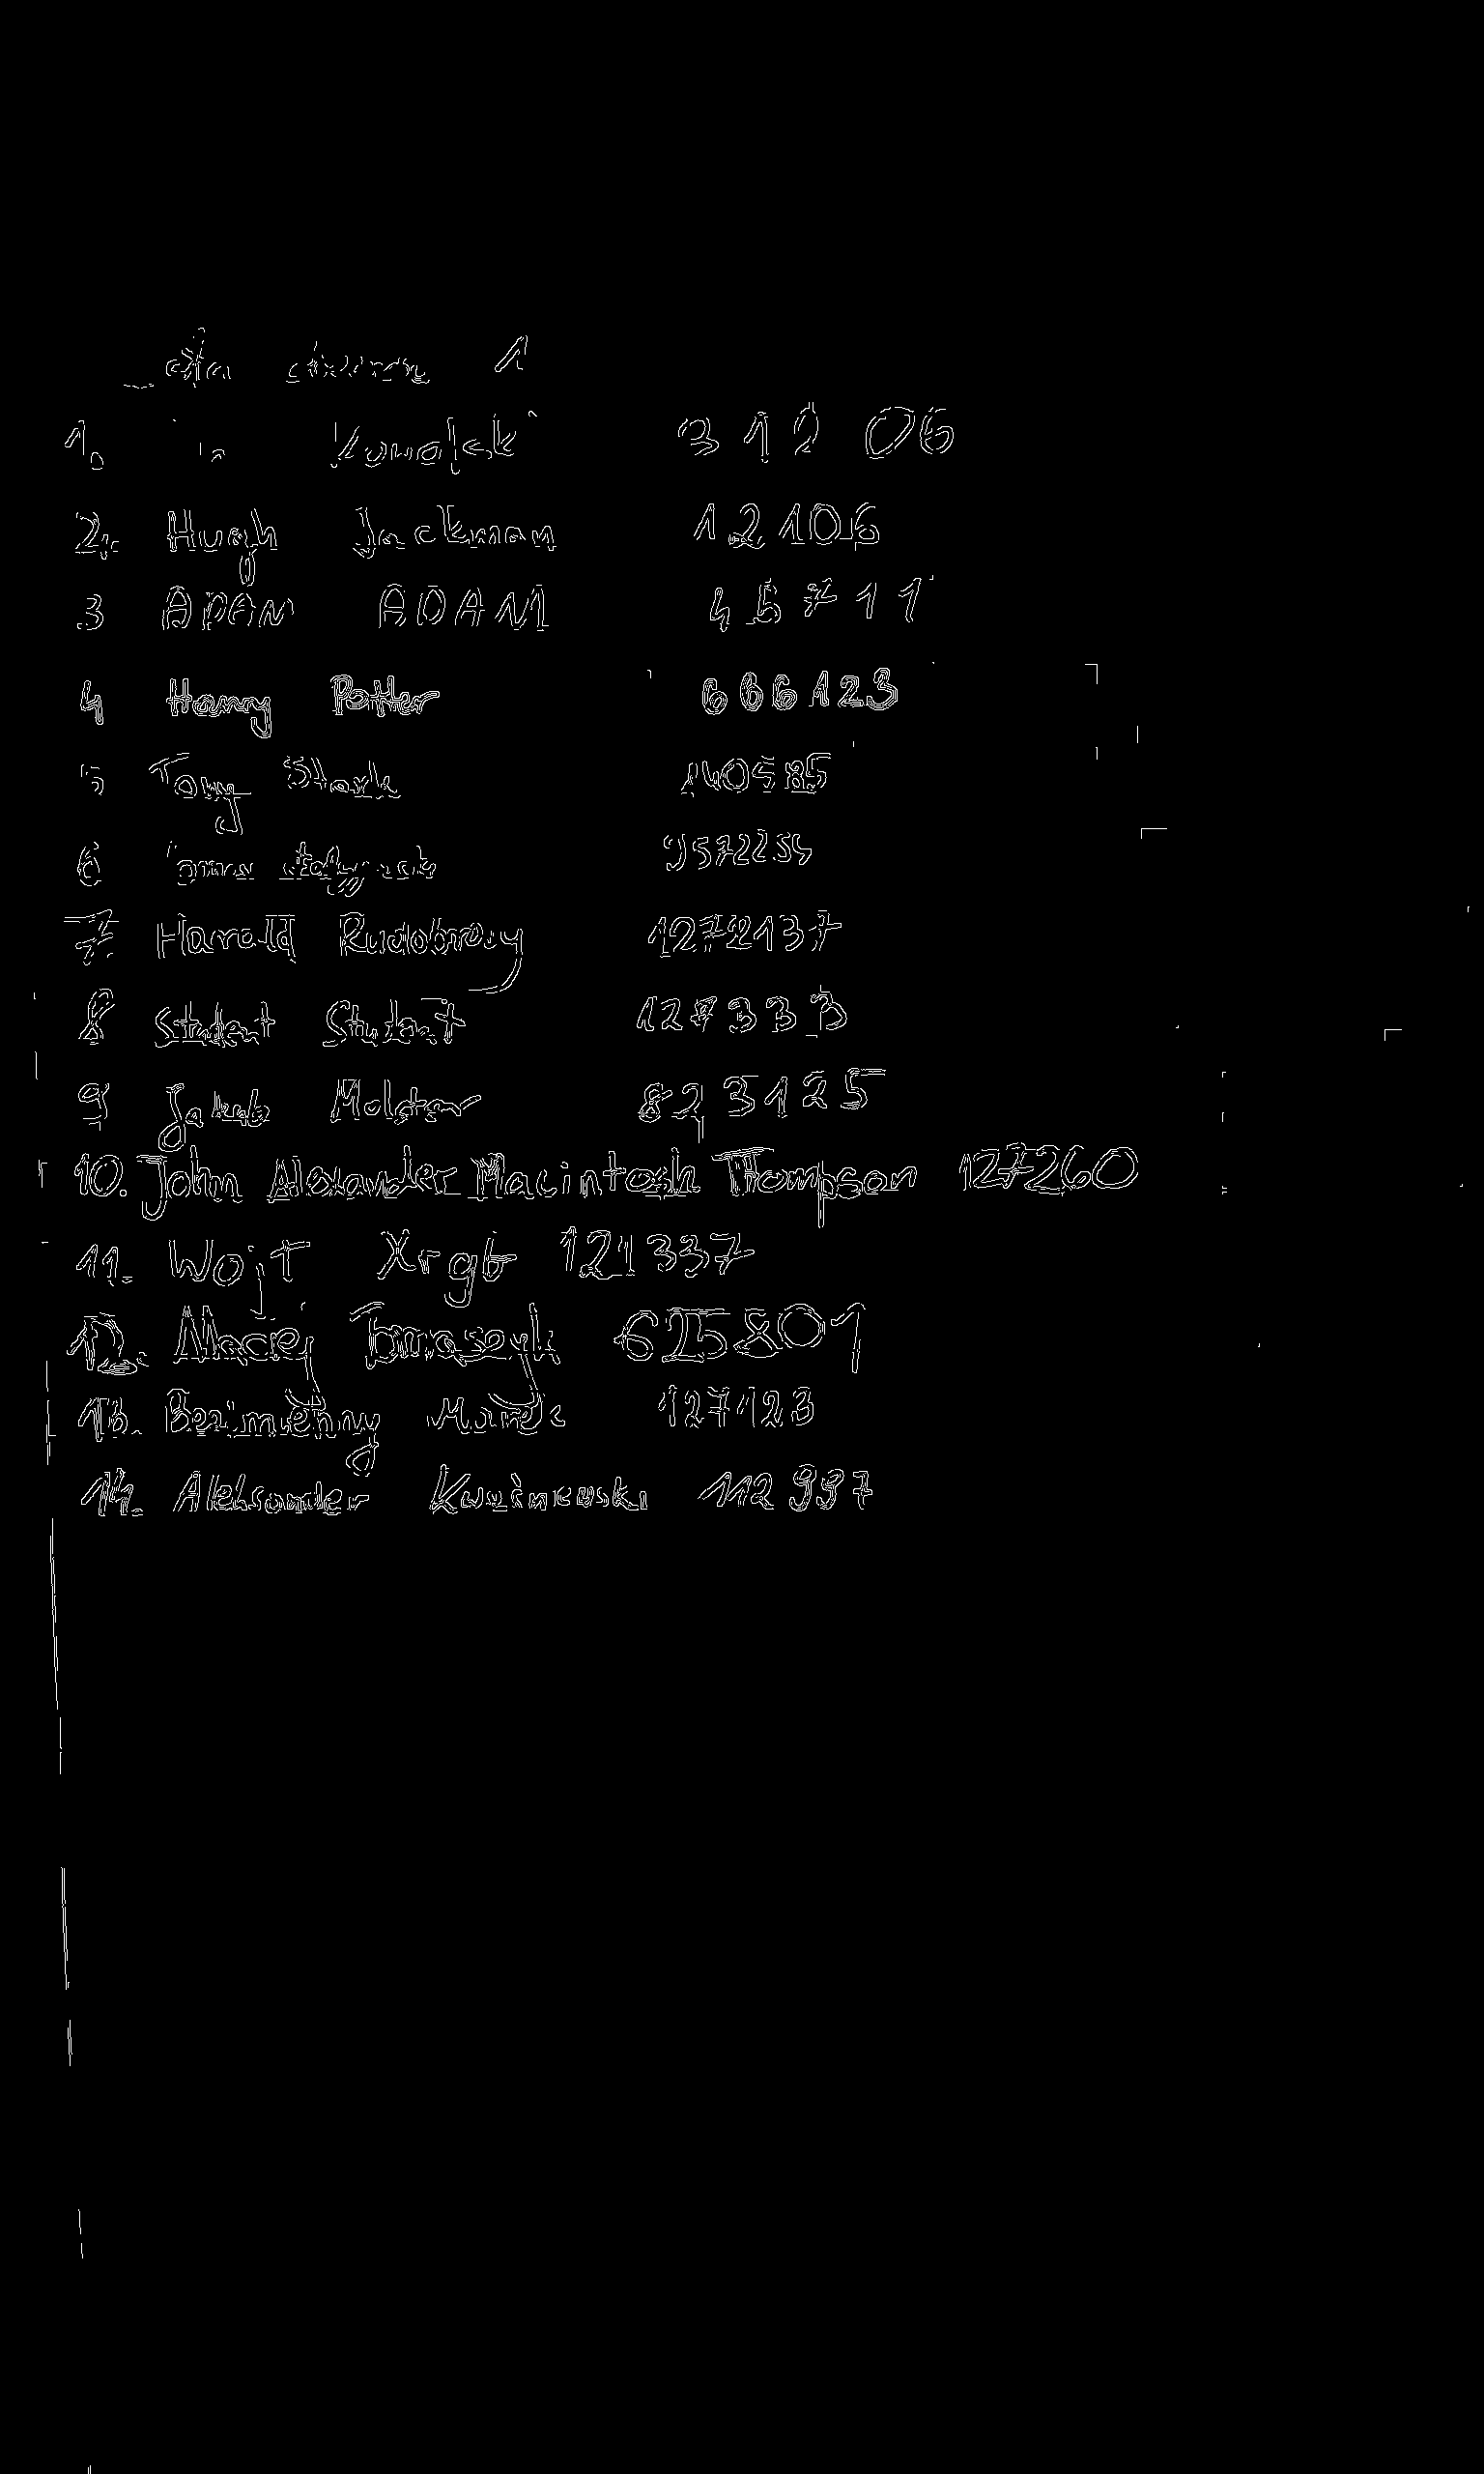 1
1. 31206
2. Hugh Jackman 12106
3 ADAM ADAM 45711
4 Harry Potter 666123
5 Tony Stark 140585
6 9572254
7 Harald Rudobrody 1272137
8 Student Student 127333
9 Jakub Molster 823125
10. John Alexander Macintosh Thompson 127260
11. Wojt Xrgb 121337
12. Maciej Tomaszyk 625801
13. Bezimienny Marek 127123
14. Aleksander 112997